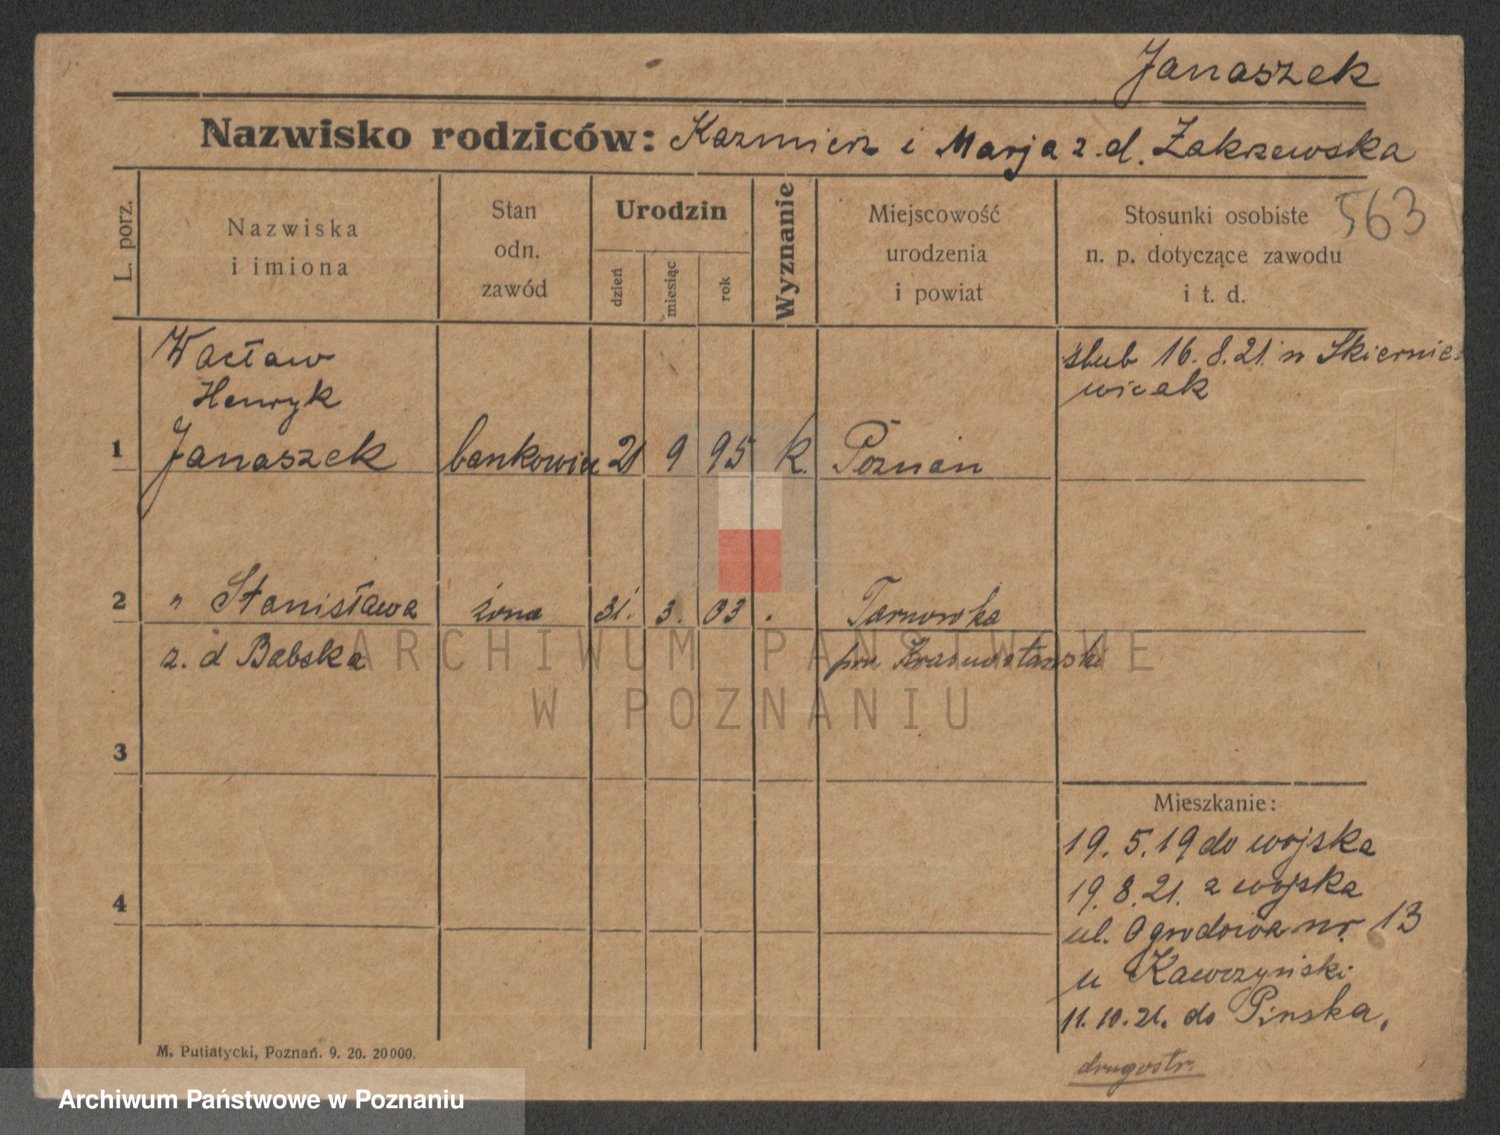 Janaszek
Nazwisko rodziców: Kazmierz i Marja z.d. Zakrzewska
563
L. porz.
Nazwiska
i imiona
Stan
odn.
zawód
Urodzin
dzień
miesiąc
rok
Wyznanie
Miejscowość
urodzenia
i powiat
Stosunki osobiste
n. p. dotyczące zawodu
i t. d.
Wacław
Henryk
1 Janaszek bankowiec 21 9 95 k. Poznań
ślub 16.8.21. w Skiernie-
wicak
2 " Stanisława żona 31. 3. 03 . Tarnowka
z. d Babska pow. Krasnostawski
3
4
Mieszkanie:
19.5.19 do wojska
19.8.21. z wojska
ul. Ogrodowa nr. 13
u Kawczyński
11.10.21. do Pinska.
drugostr.
M. Putiatycki, Poznań. 9. 20. 20000.
ARCHIWUM PAŃSTWOWE
W POZNANIU
Archiwum Państwowe w Poznaniu